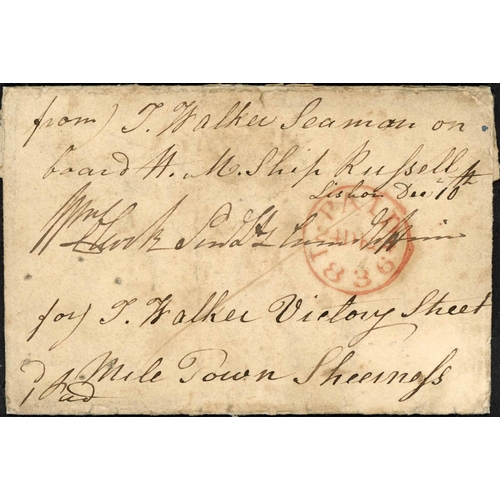 from) T. Walker Seaman on
board H. M. Ship Russell
Lisbon Dec 10th
Wm
PAID
1836
for) T. Walker Victory Street
Mile Town Sheerness
Pd 1d